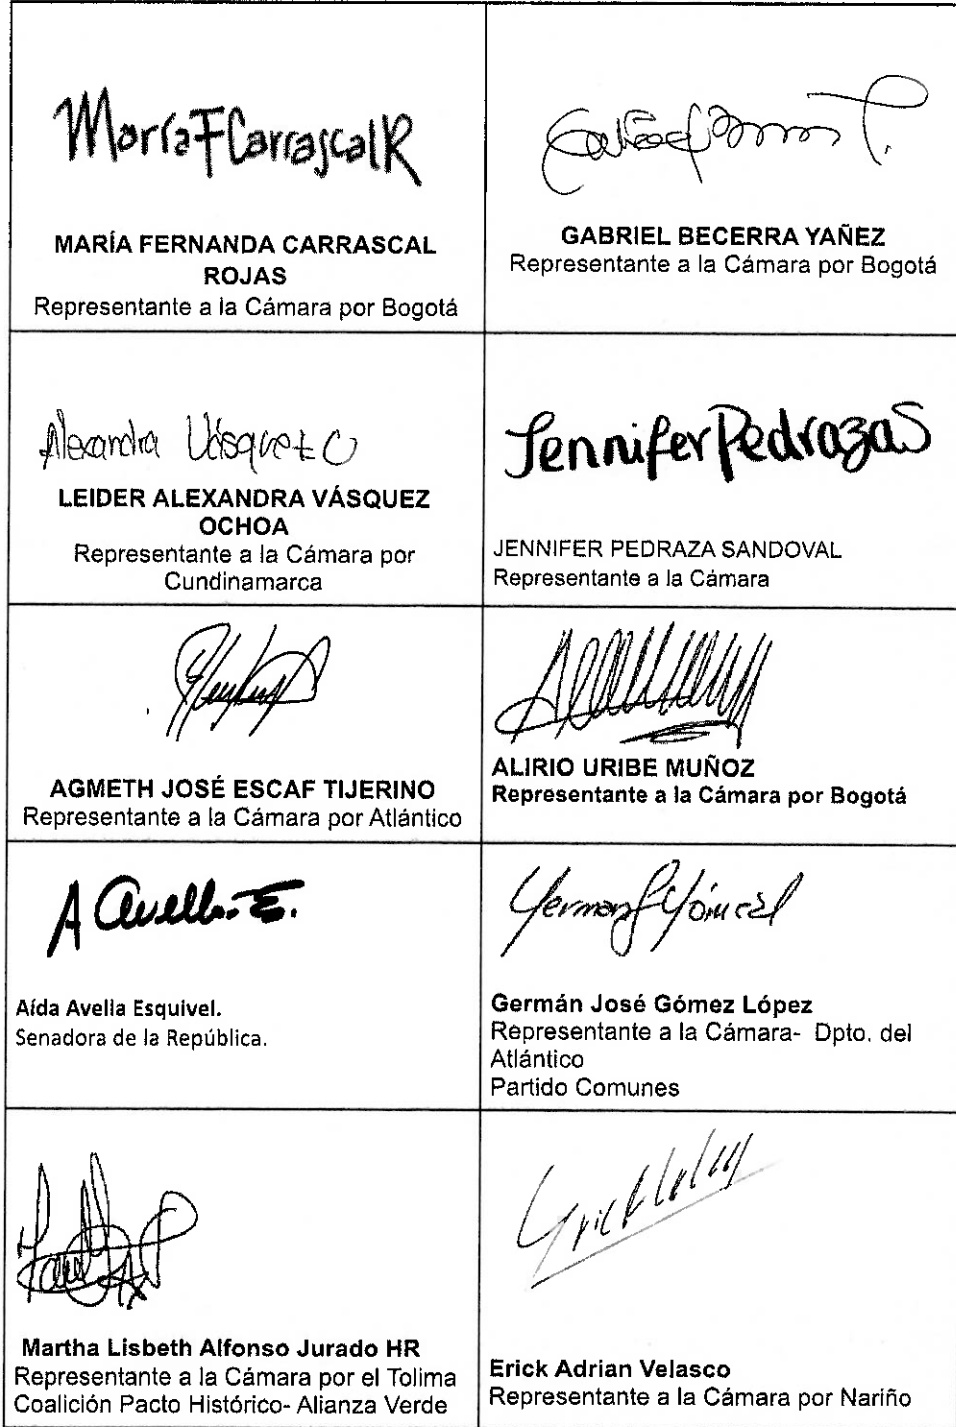 MaríaFCarrascalR
MARÍA FERNANDA CARRASCAL
ROJAS
Representante a la Cámara por Bogotá
GABRIEL BECERRA YAÑEZ
Representante a la Cámara por Bogotá
Alexandra Vásquez O
LEIDER ALEXANDRA VÁSQUEZ
OCHOA
Representante a la Cámara por
Cundinamarca
Jennifer PedrazaS
JENNIFER PEDRAZA SANDOVAL
Representante a la Cámara
AGMETH JOSÉ ESCAF TIJERINO
Representante a la Cámara por Atlántico
ALIRIO URIBE MUÑOZ
Representante a la Cámara por Bogotá
A Avella E.
Aída Avella Esquivel.
Senadora de la República.
Germán José Gómez López
Representante a la Cámara- Dpto. del
Atlántico
Partido Comunes
Martha Lisbeth Alfonso Jurado HR
Representante a la Cámara por el Tolima
Coalición Pacto Histórico- Alianza Verde
Erick Adrian Velasco
Representante a la Cámara por Nariño